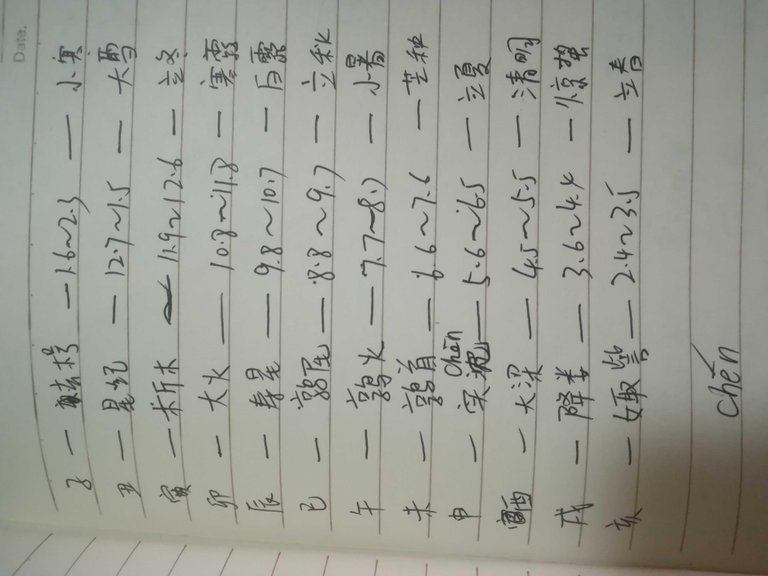 Date.
子 — 玄枵 — 1.6~2.3 — 小寒
丑 — 星纪 — 12.7~1.5 — 大雪
寅 — 析木 — 11.9~12.6 — 立冬
卯 — 大火 — 10.8~11.8 — 寒露
辰 — 寿星 — 9.8~10.7 — 白露
巳 — 鹑尾 — 8.8~9.7 — 立秋
午 — 鹑火 — 7.7~8.7 — 小暑
未 — 鹑首 — 6.6~7.6 — 芒种
chén
申 — 实沈 — 5.6~6.5 — 立夏
酉 — 大梁 — 4.5~5.5 — 清明
戌 — 降娄 — 3.6~4.4 — 惊蛰
亥 — 娵訾 — 2.4~3.5 — 立春
chén